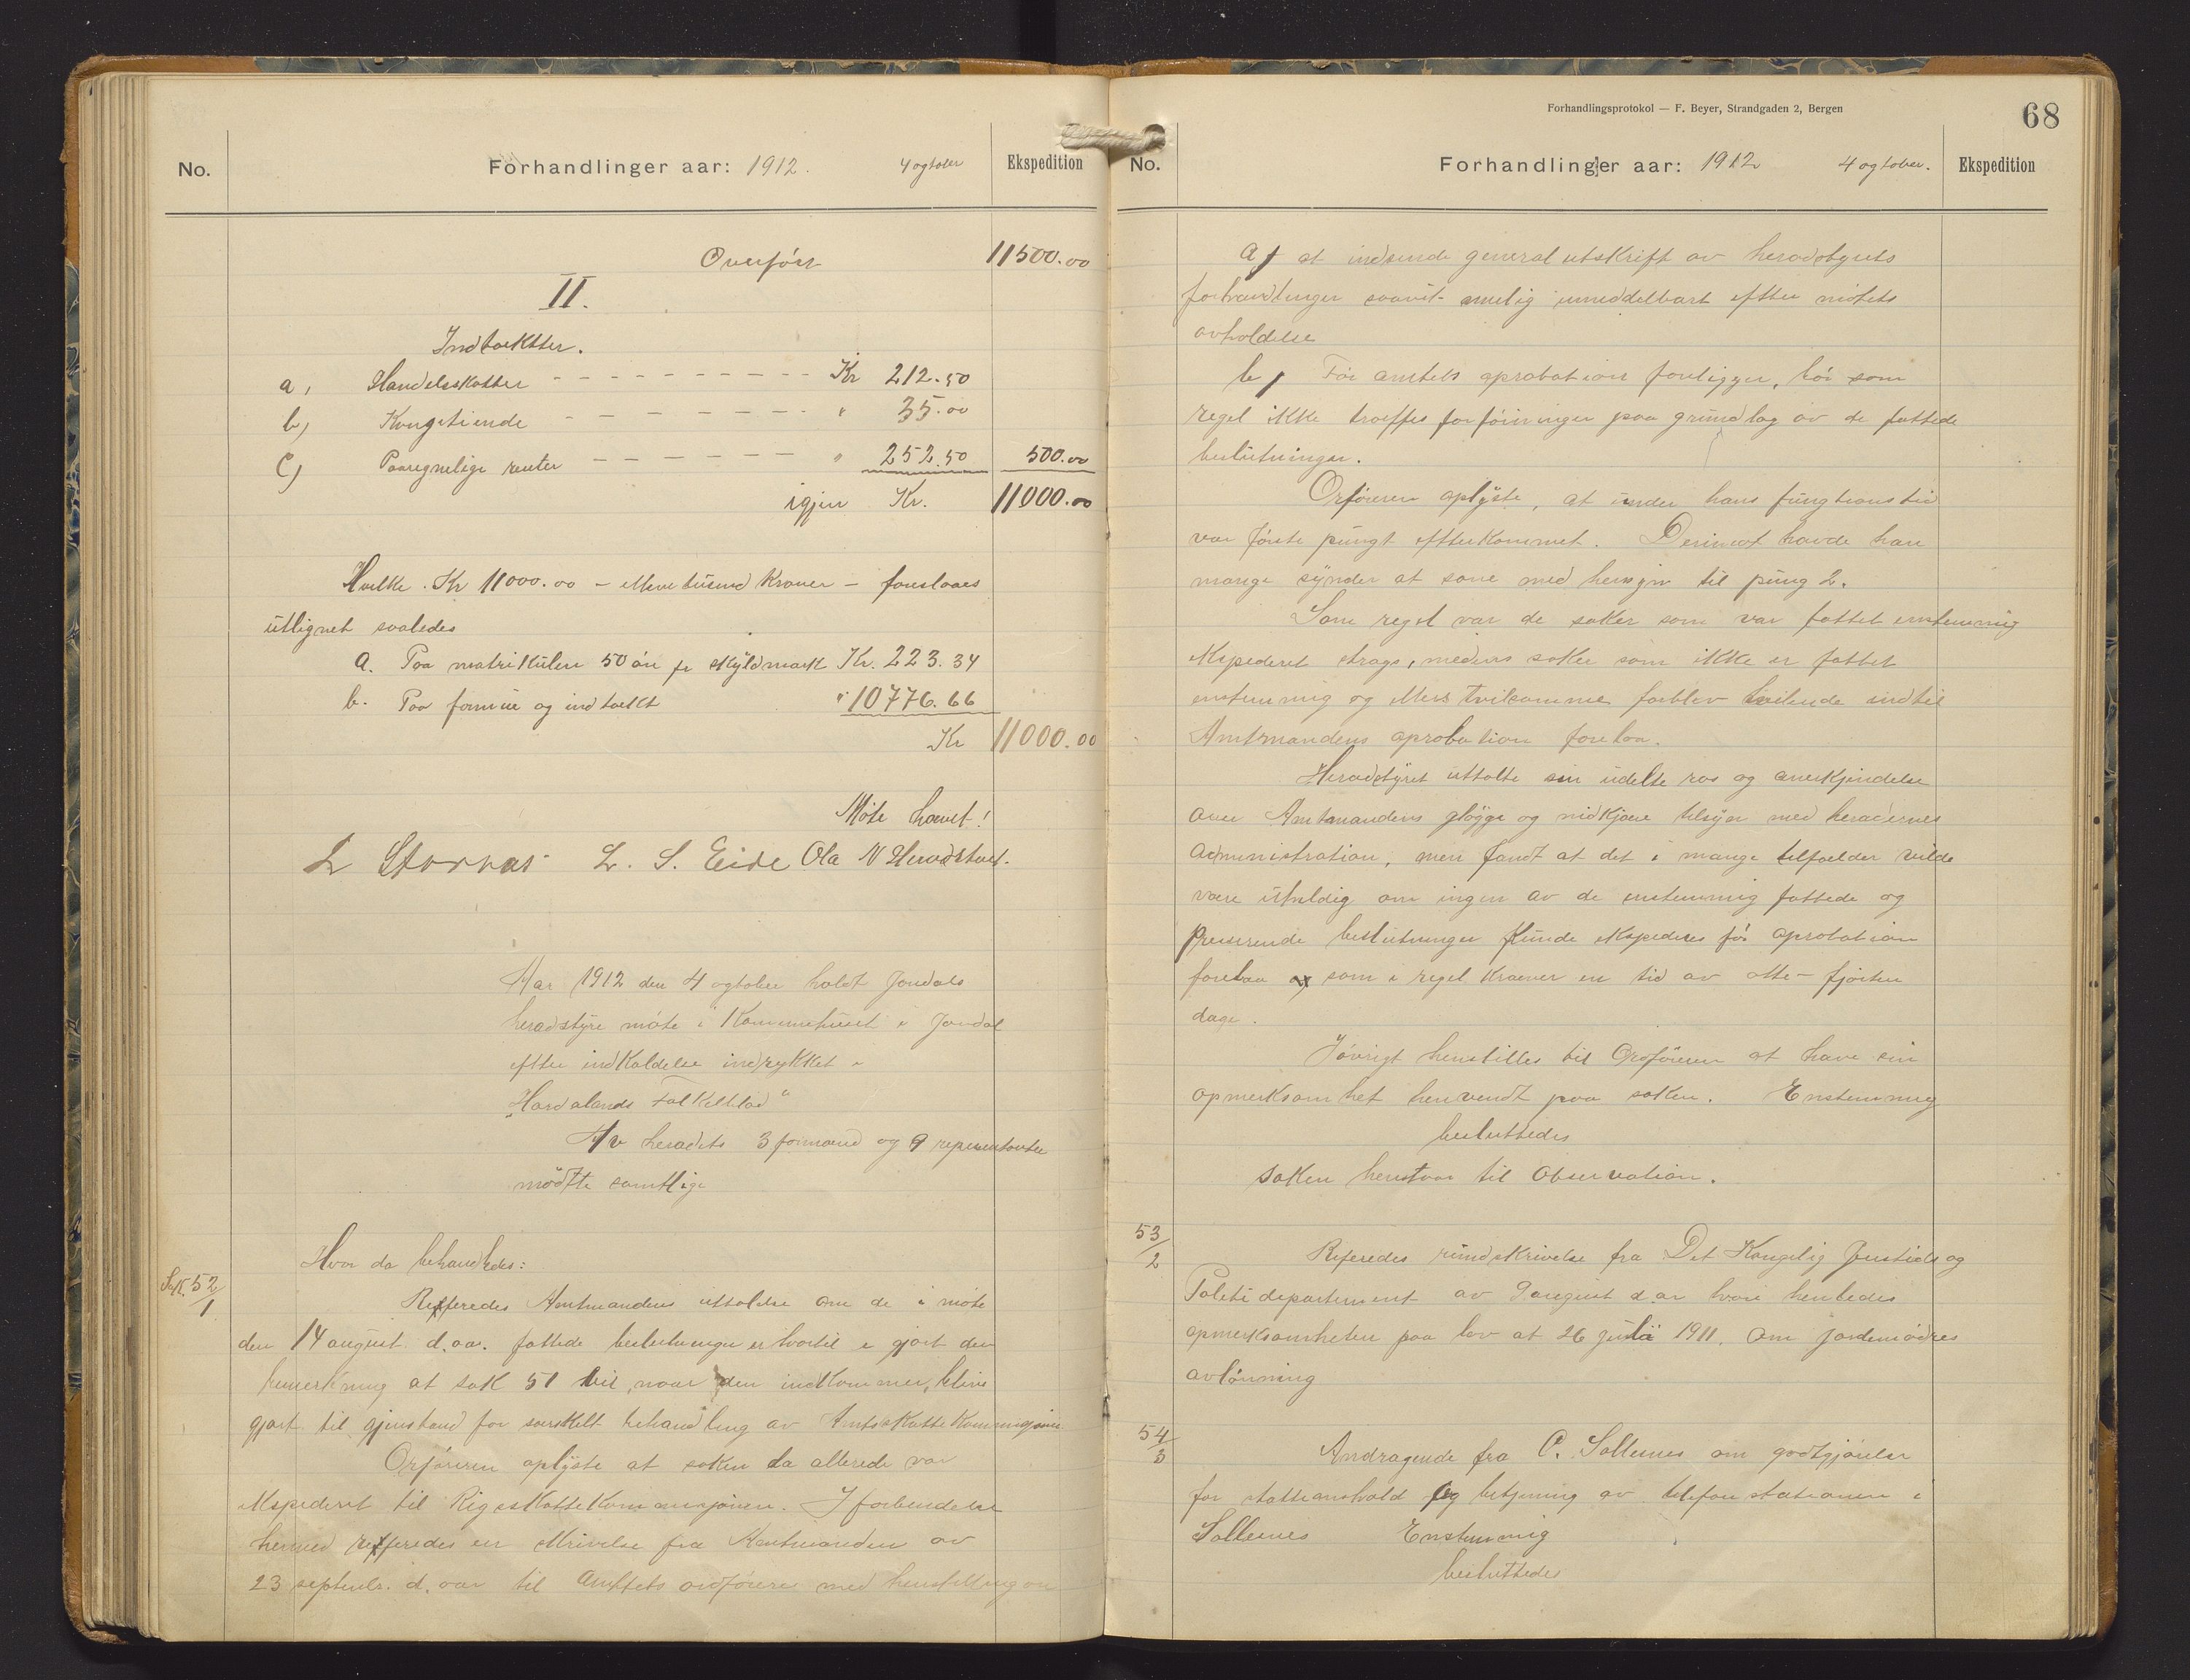 No.
Forhandlinger aar: 1912.
4 ogtober
Ekspedition
Overført 11500.00
II.
Indtækter.
a, Handelsskatter Kr 212.50
b, Kongetiende " 35.00
C) Paaregnelige renter " 252.50 500.00
igjen Kr. 11000.00
Hvilke Kr 11000.00 – elleve tusend Kroner – foreslaaes
utlignet saaledes
a. Paa matrikulen 50 øre pr skyldmark Kr. 223.34
b. Paa formue og indtækt " 10776.66
Kr 11000.00
Møte hævet!
L Stornæs L. S. Eide Ola N Heradstveit.
Aar 1912 den 4 ogtober holdt Jondals
heradstyre møte i Kommunehuset i Jondal
efter indkaldelse indrykket i
"Hordalands Folkeblad"
Av heradets 3 formænd og 9 representanter
mødtte samtlige
Hvor da behandledes:
Sak. 52/1
Refferedes Amtmandens uttalelse om de i møte
den 14 august d. aa. fattede beslutninger er hvortil e gjort den
bemerkning at sak 51 vil, naar den indkommer, blive
gjort til gjenstand for særskilt behandling av Amtsskattekommisjonen
Orføreren oplyste at saken da allerede var
ekspederet til Rigsskattekommisjonen. I forbindelse
hermed refferedes en skrivelse fra Amtmanden av
23 septembr. d. aar til Amtets ordførere med henstilling om
Forhandlingsprotokol — F. Beyer, Strandgaden 2, Bergen
68
No.
Forhandlinger aar: 1912
4 ogtober.
Ekspedition
a, at indsende general utskrift av heradstyrets
forhandlinger saavit mulig umiddelbart efter møtets
avholdelse
b, Før amtets aprobation foreligger, bør som
regel ikke træffes forføininger paa grundlag av de fattede
beslutninger.
Orføreren oplyste, at under hans fungtionstid
var første pungt efterkommet. Derimot havde han
mange synder at sone med hensyn til pung 2.
Som regel var de saker som var fattet enstemmig
ekspederet strags, medens saker som ikke er fattet
enstemmig og ellers tvilsomme forblev hvilende indtil
Amtmandens aprobation forelaa.
Heradstyret uttalte sin udelte ros og anerkjendelse
over Amtmandens gløgge og nidkjære tilsyn med heradernes
administration, men fandt at det i mange tilfælder vilde
være uheldig om ingen av de enstemmig fattede og
presserende beslutninger kunde ekspederes før aprobation
forelaa som i regel kræver en tid av otte – fjorten
dage.
Iøvrigt henstilles til Ordføreren at have sin
opmerksomhet henvendt paa saken. Enstemmig
besluttedes
Saken henstaar til Observation.
53/2
Referedes rundskrivelse fra Det Kongelig Justids og
Politidepartement av 9 august d. ar hvori henledes
opmerksomheten paa lov at 26 juli 1911. om jordmødres
avlønning
54/3
Andragende fra C. Solleenes om godtgjørelse
for stattionshold og betjening av telefonstationen i
Solleenes Enstemmig
besluttedes